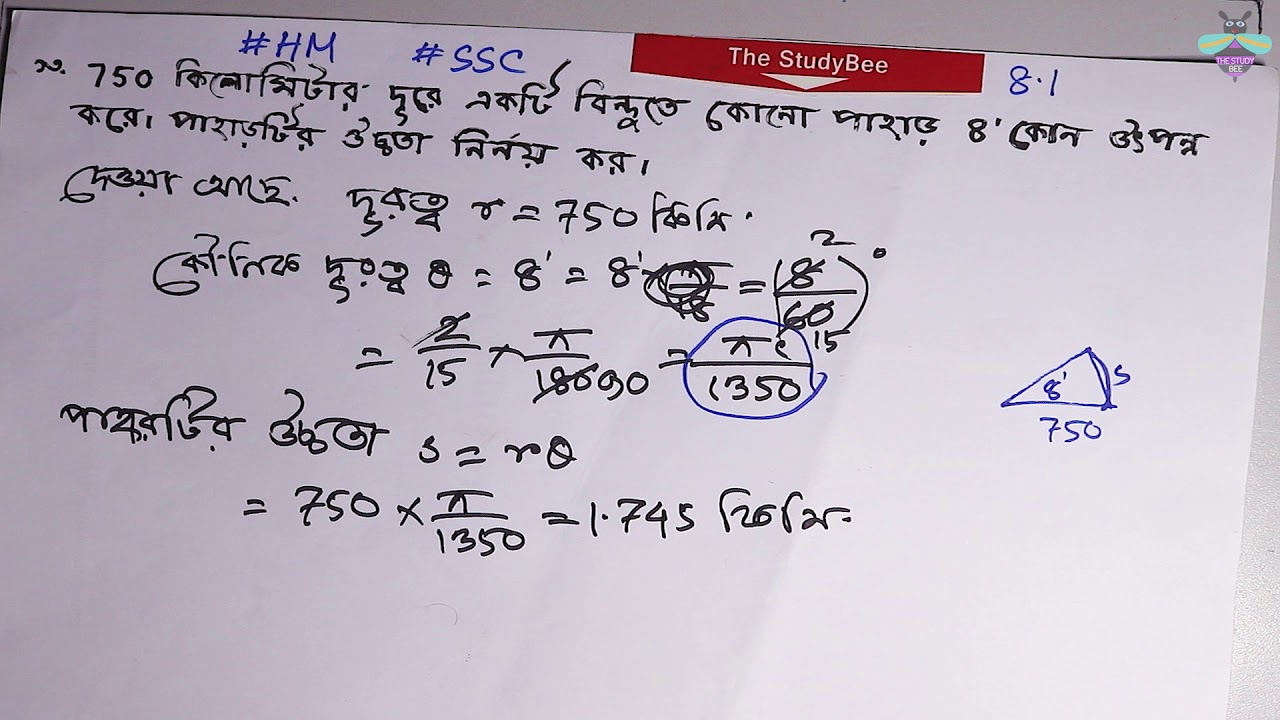 #HM #SSC The StudyBee 8.1
THE STUDY BEE
২. 750 কিলোমিটার দূরে একটি বিন্দুতে কোনো পাহাড় 8' কোন উৎপন্ন
করে। পাহাড়টির উচ্চতা নির্নয় কর।
দেওয়া আছে, দূরত্ব r = 750 কিমি.
কৌনিক দূরত্ব θ = 8' = 8' = (8/60)° 2 15
= 2/15 × π/180 90 = πc/1350
8' s
750
পাহাড়টির উচ্চতা s = rθ
= 750 × π/1350 = 1.745 কিমি.